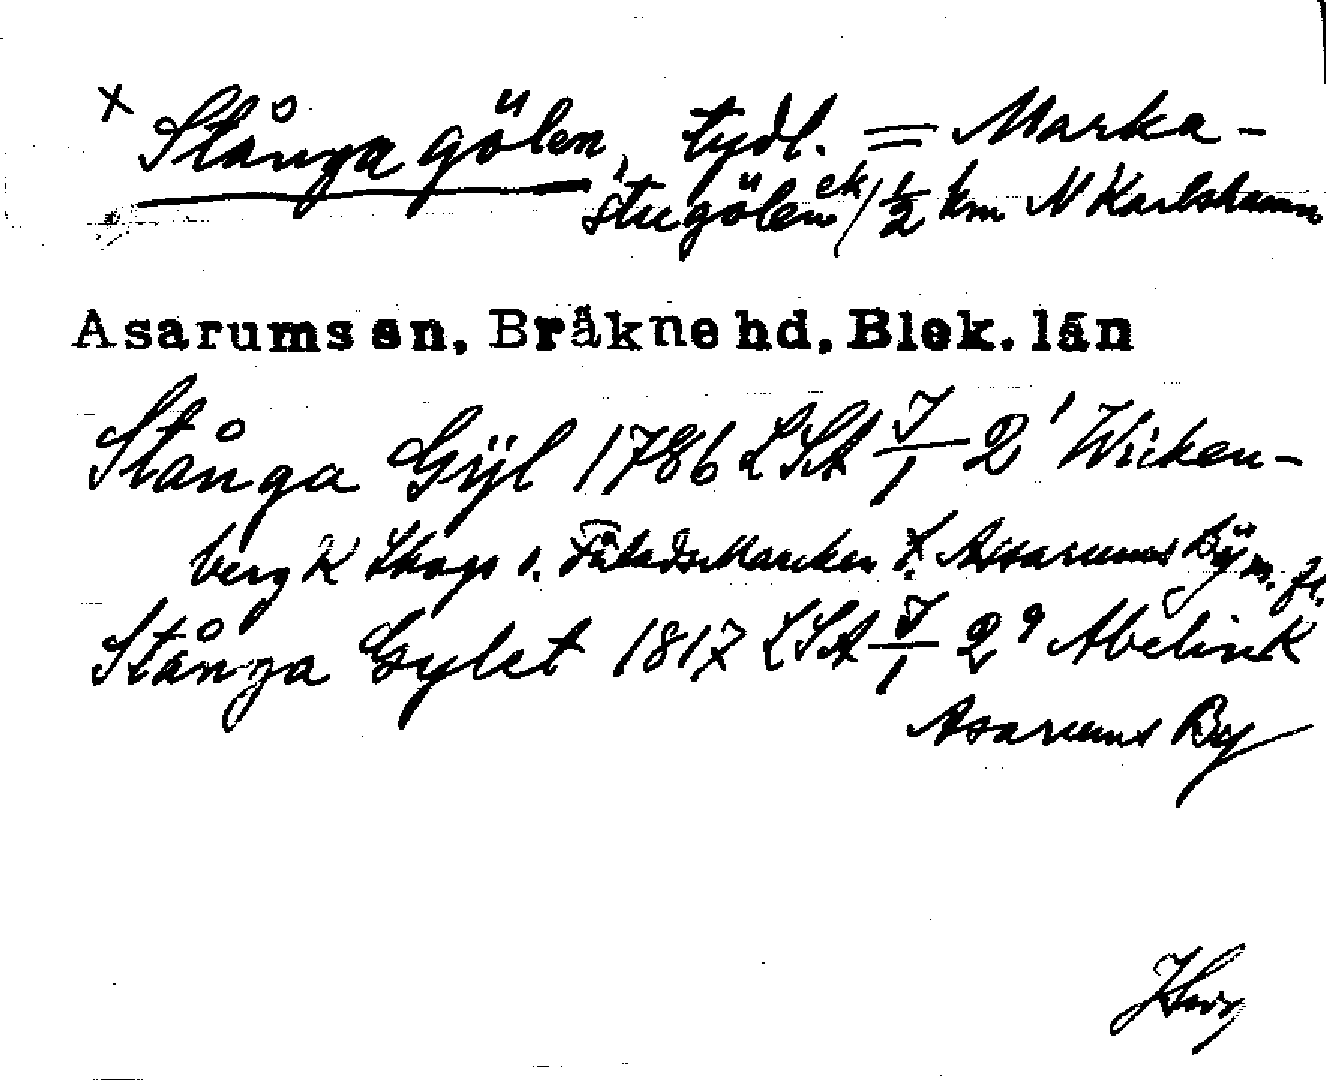 x Stånga gölen, tydl. = Marka-
stugölen ek / ½ km N Karlshamn
Asarums sn, Bräkne hd, Blek. län
Stånga Gÿl 1786 LSA J/1 2¹ Wicken-
berg K Skogs o. Marcken t. Assarums Bÿ m. fl.
Stånga Gylet 1817 LSA J/1 2⁹ Abelin K
Asarums By